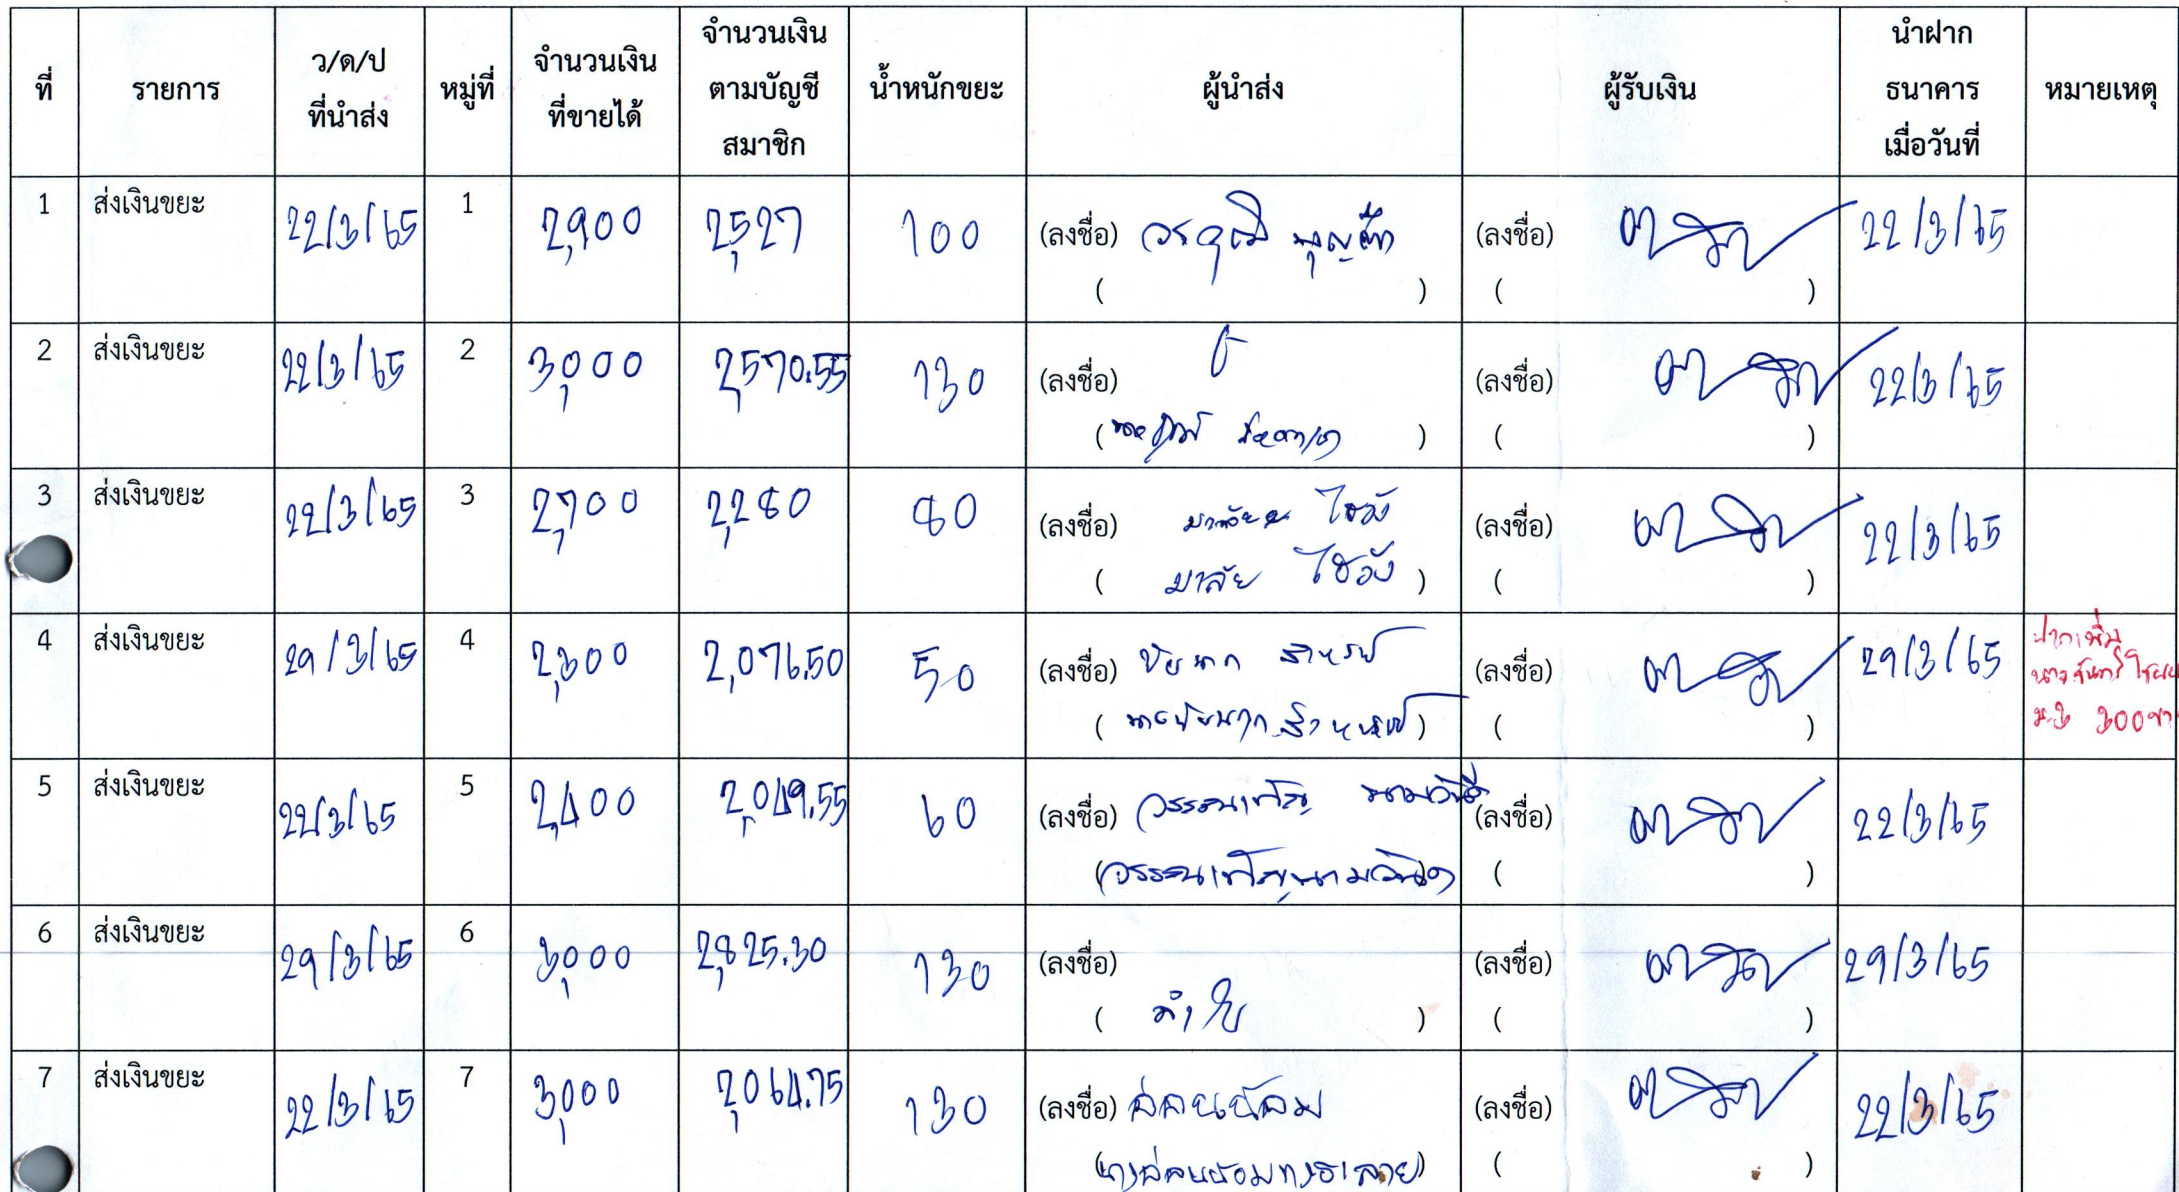 ที่ รายการ ว/ด/ป ที่นำส่ง หมู่ที่ จำนวนเงิน ที่ขายได้ จำนวนเงิน ตามบัญชี สมาชิก น้ำหนักขยะ ผู้นำส่ง ผู้รับเงิน นำฝาก ธนาคาร เมื่อวันที่ หมายเหตุ
1 ส่งเงินขยะ 22/3/65 1 2,900 2,527 100 (ลงชื่อ) (ลงชื่อ) 22/3/65
( ) ( )
2 ส่งเงินขยะ 22/3/65 2 3,000 2,570.55 130 (ลงชื่อ) (ลงชื่อ) 22/3/65
( ) ( )
3 ส่งเงินขยะ 22/3/65 3 2,700 2,280 80 (ลงชื่อ) (ลงชื่อ) 22/3/65
( มาลัย ไชวัง ) ( )
4 ส่งเงินขยะ 29/3/65 4 2,300 2,076.50 50 (ลงชื่อ) (ลงชื่อ) 29/3/65 ฝากเพิ่ม
( ) ( ) ม.3 300 บาท
5 ส่งเงินขยะ 22/3/65 5 2,400 2,049.55 60 (ลงชื่อ) (ลงชื่อ) 22/3/65
( ) ( )
6 ส่งเงินขยะ 29/3/65 6 3,000 2,825.30 130 (ลงชื่อ) (ลงชื่อ) 29/3/65
( ) ( )
7 ส่งเงินขยะ 22/3/65 7 3,000 2,064.75 130 (ลงชื่อ) (ลงชื่อ) 22/3/65
( ) ( )